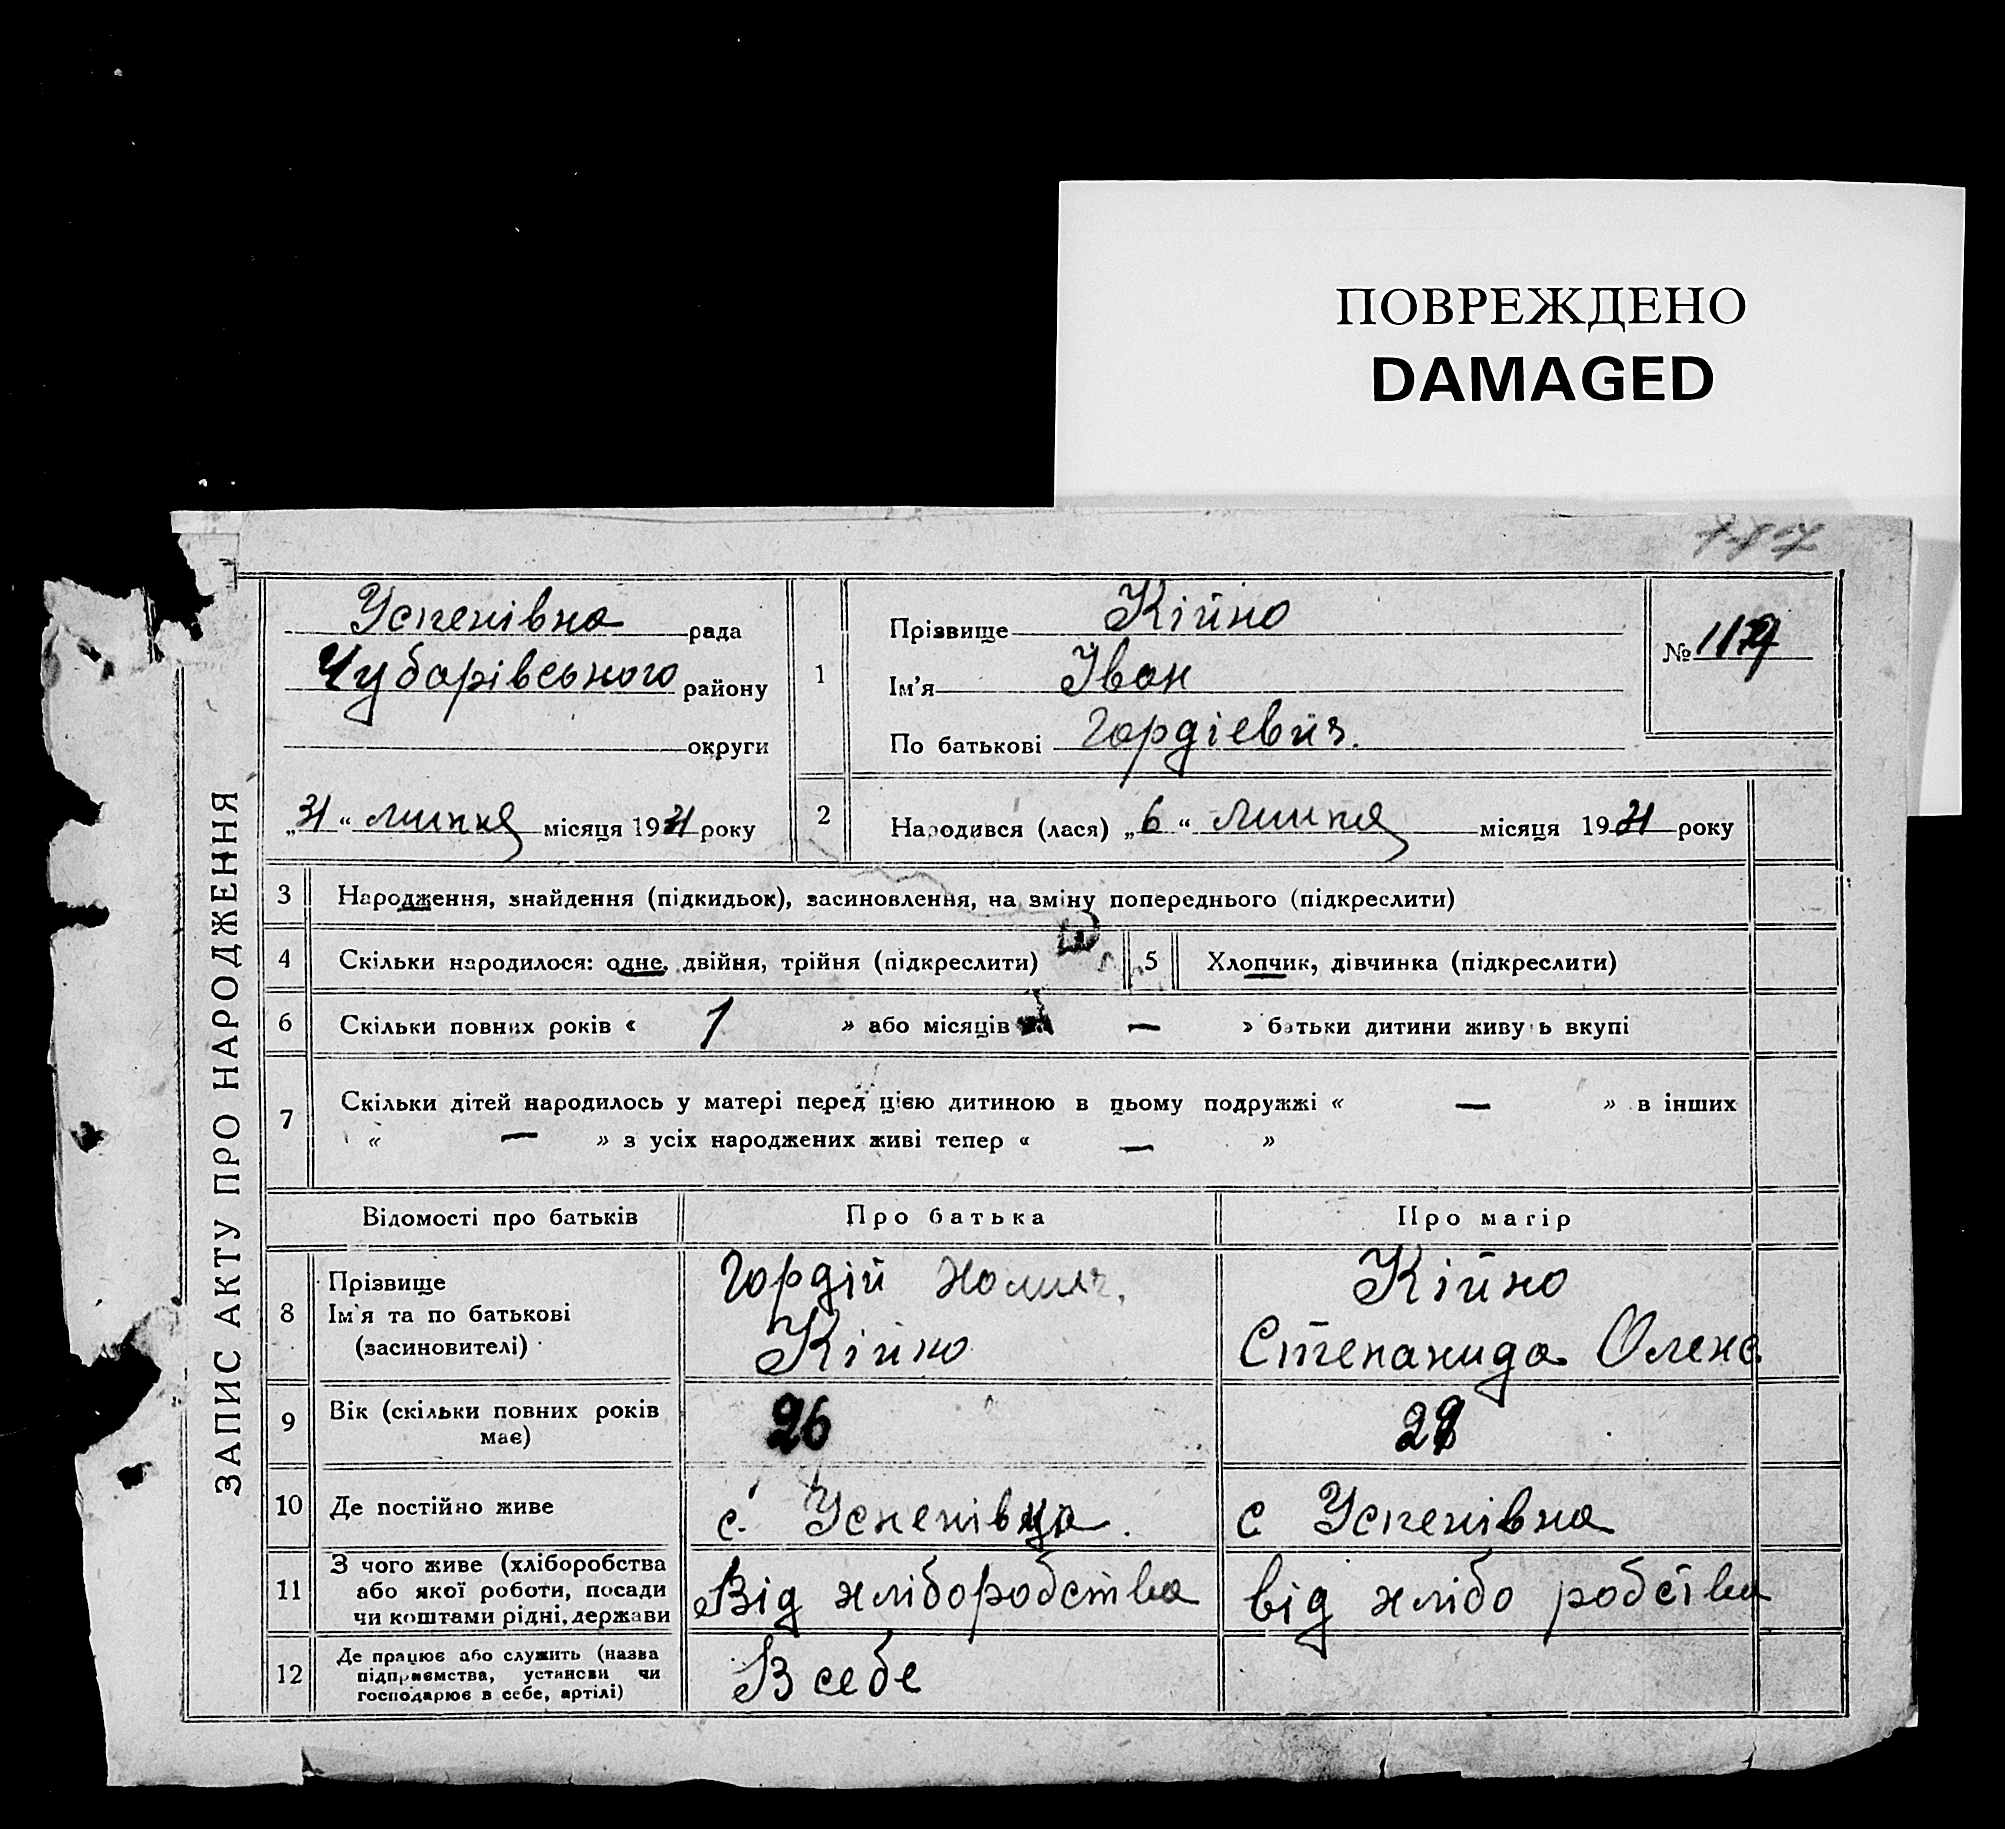 ПОВРЕЖДЕНО
DAMAGED
ЗАПИС АКТУ ПРО НАРОДЖЕННЯ
Успенівна рада
Чубарівського району
округи
„31“ липня місяця 1931 року
1
Прізвище Кійно
Ім'я Іван
По батькові Гордієвич.
№
2 Народився (лася) „6“ липня місяця 1931 року
3 Народження, знайдення (підкидьок), засиновлення, на зміну попереднього (підкреслити)
4 Скільки народилося: одне, двійня, трійня (підкреслити)
5 Хлопчик, дівчинка (підкреслити)
6 Скільки повних років « 1 » або місяців — » батьки дитини живуть вкупі
7 Скільки дітей народилось у матері перед цією дитиною в цьому подружжі « — » в інших
« — » з усіх народжених живі тепер « — »
Відомості про батьків Про батька Про матір
8 Прізвище
Ім'я та по батькові
(засиновителі)
Гордій
Кійно
Кійно
Степанида Олекс
9 Вік (скільки повних років
має)
26
10 Де постійно живе
с. Успенівна.
с Успенівна
11 З чого живе (хліборобства
або якої роботи, посади
чи коштами рідні, держави
Від хліборобства
від хлібо робства
12 Де працює або служить (назва
підприємства, установи чи
господарює в себе, артілі)
В себе